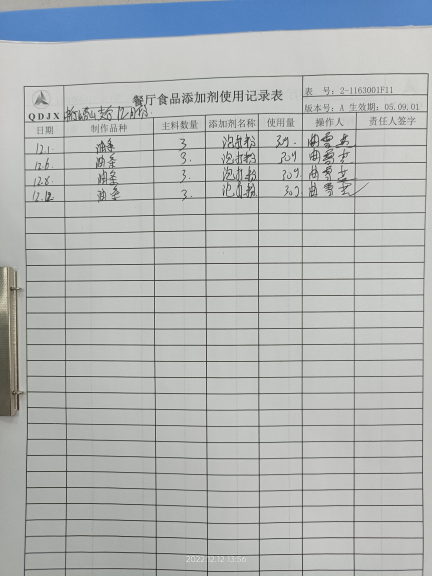 餐厅食品添加剂使用记录表
表 号：2-1163001F11
QDJX
12月份
版本号：A 生效期：05.09.01
日期 制作品种 主料数量 添加剂名称 使用量 操作人 责任人签字
12.1 油条 3 泡打粉 30g.
12.6. 油条 3 泡打粉 30g
12.8. 油条 3. 泡打粉 30g
12.12 油条 3. 泡打粉 30g
2022.12.12 13:56